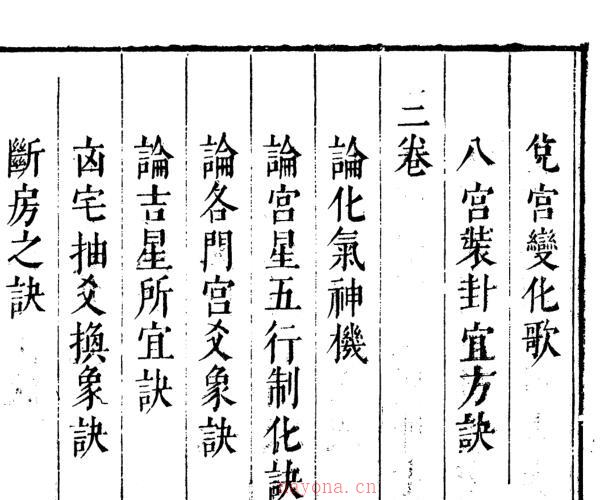 兌宮變化歌
八宮裝卦宜方訣
二卷
論化氣神機
論宮星五行制化訣
論各門宮爻象訣
論吉星所宜訣
凶宅抽爻換象訣
斷房之訣
nayona.cn